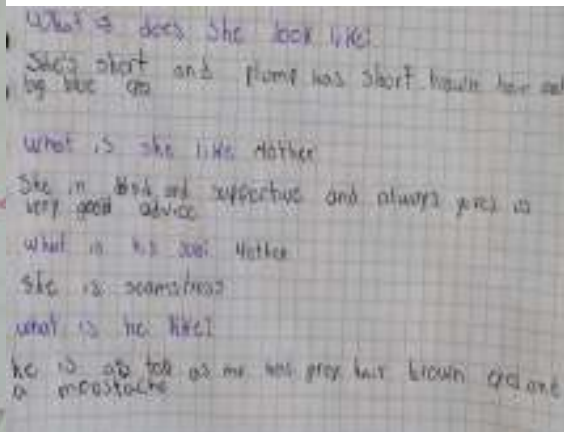 What does she look like?
She's short and plump has short brown hair and
big blue eyes
What is she like Mother
She is kind and supportive and always gives us
very good advice
what is his Mother
She is seamstress
what is he like?
he is as tall as me has grey hair brown eyes and
a moustache